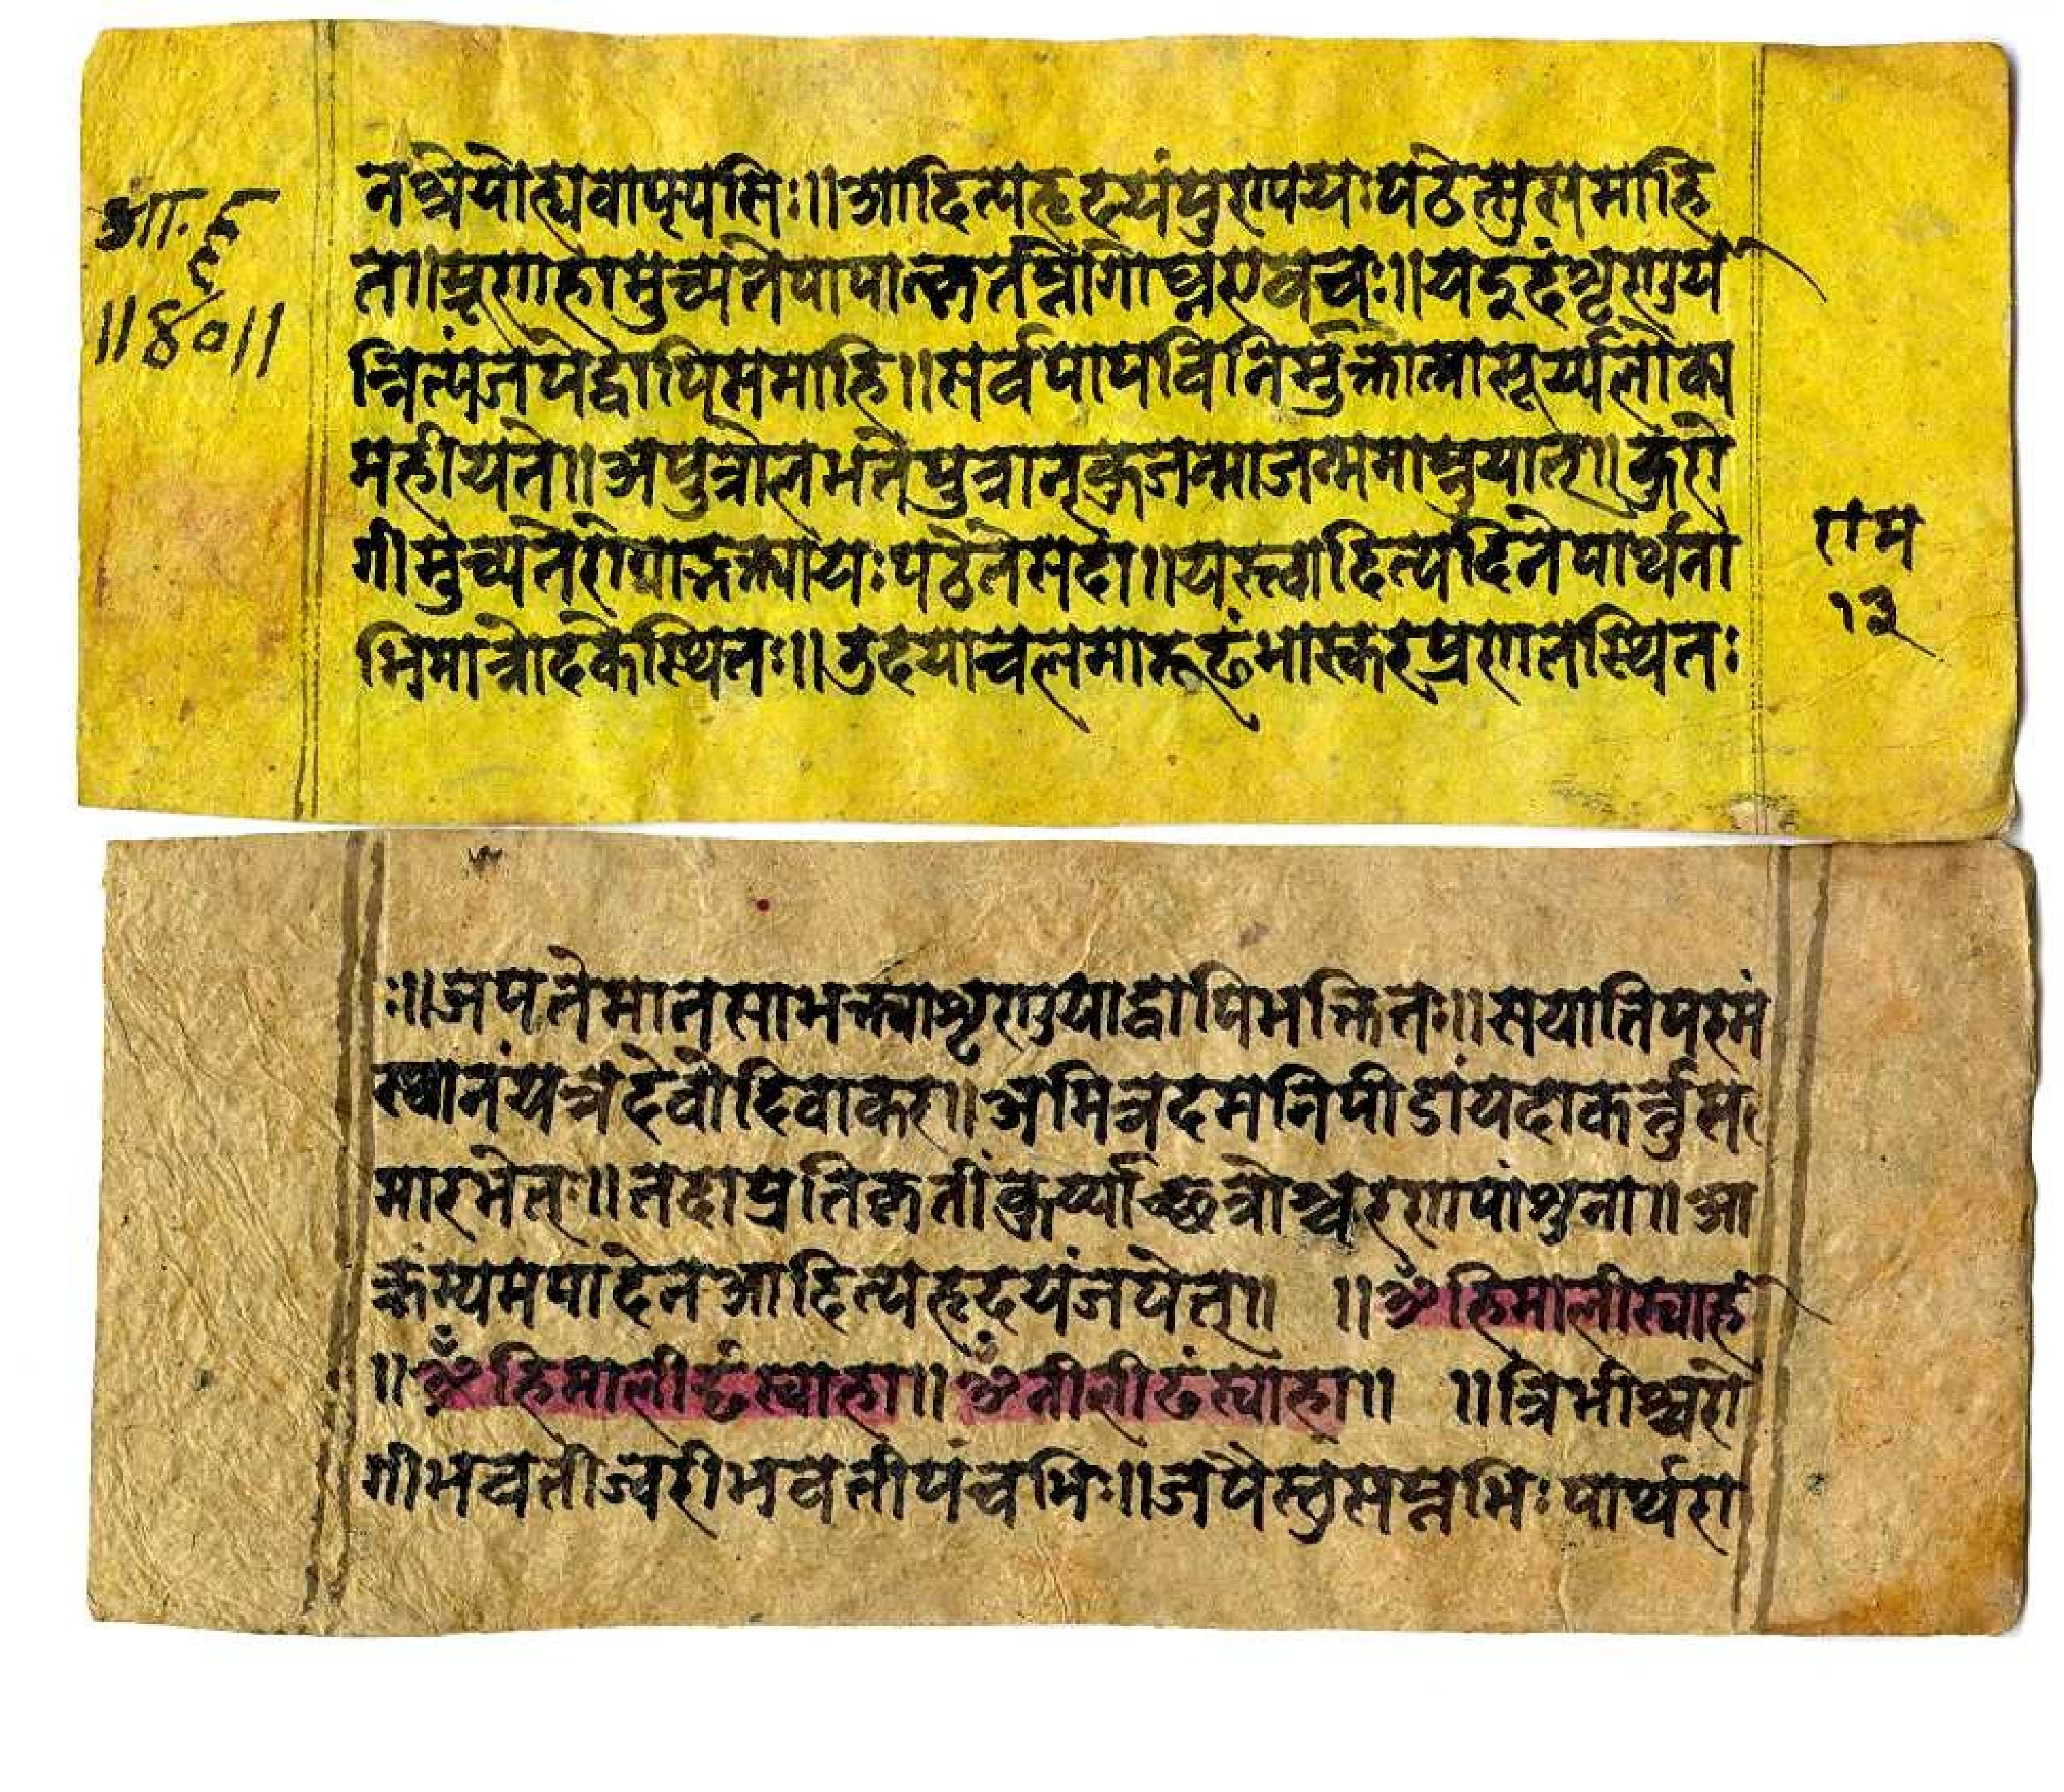 आ. ह
॥४०॥
नश्रेयोह्यवाप्स्यसिः॥आदित्यहृदयंपुरापयःपठेत्सुसमाहि
त॥भ्रूणहामुच्यतेपापात्कृतघ्नोगोघ्नएवचः॥यदुदंशृणुये
न्नित्यंजपेद्वापिसमाहि॥सर्वपापविनिर्मुक्तात्मासूर्य्यलोका
महीयते॥अपुत्रोलभतेपुत्रान्कुजन्माजन्ममाप्नुयात्॥कुरो
गीमुच्यतेरोगाद्भक्त्यायःपठेतेसदा॥यस्त्वादित्यदिनेपार्थना
भिमात्रोदकेस्थितः॥उदयाचलमारूढंभास्करप्रणतस्थितः
राम
१३
ः॥जपतेमानसाभक्त्याशृणुयाद्वापिभक्तितः॥सयातिपरमं
स्थानंयत्रदेवोदिवाकर॥अमित्रदमनिपीडांयदाकर्त्तुस
मारभेत्॥तदाप्रतिकृतींकुर्य्याच्छत्रोश्चरणपांशुना॥आ
क्रम्यमपादेनआदित्यहृदयंजपेत्॥ ॥ॐहिमालीस्वाहा
॥ॐहिमालीढंस्वाहा॥ॐनीलीढंस्वाहा॥ ॥त्रिभीश्चरो
गीभवतीज्वरीभवतीपंचभिः॥जपैस्तुसप्तभिःपार्थरा